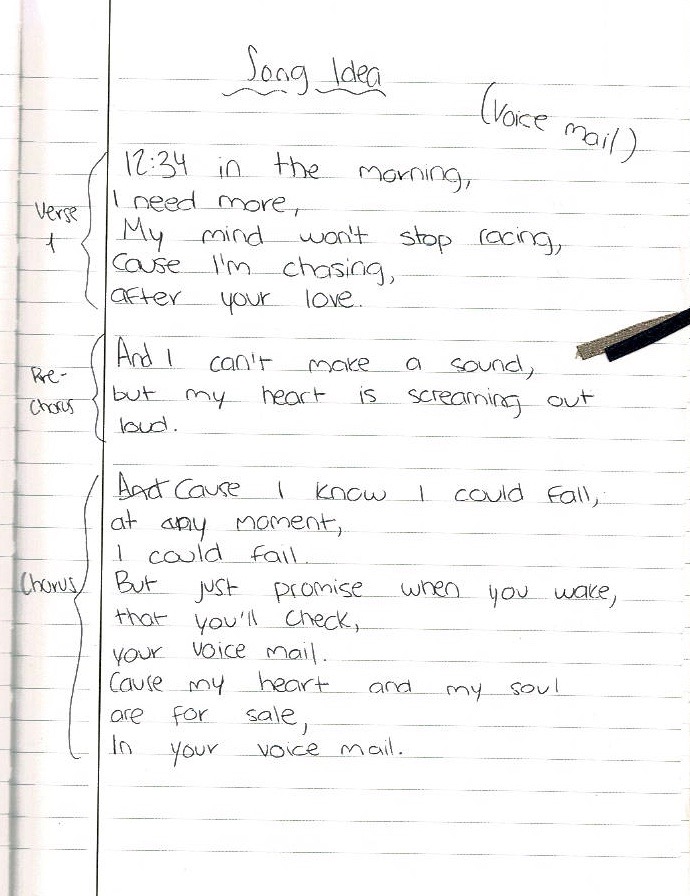 Song Idea
(Voice mail)
Verse 1
12:34 in the morning,
I need more,
My mind won't stop racing,
Cause I'm chasing,
after your love.
Pre-Chorus
And I can't make a sound,
but my heart is screaming out
loud.
Chorus
And Cause I know I could fall,
at any moment,
I could fail.
But just promise when you wake,
that you'll check,
your voice mail.
Cause my heart and my soul
are for sale,
In your voice mail.